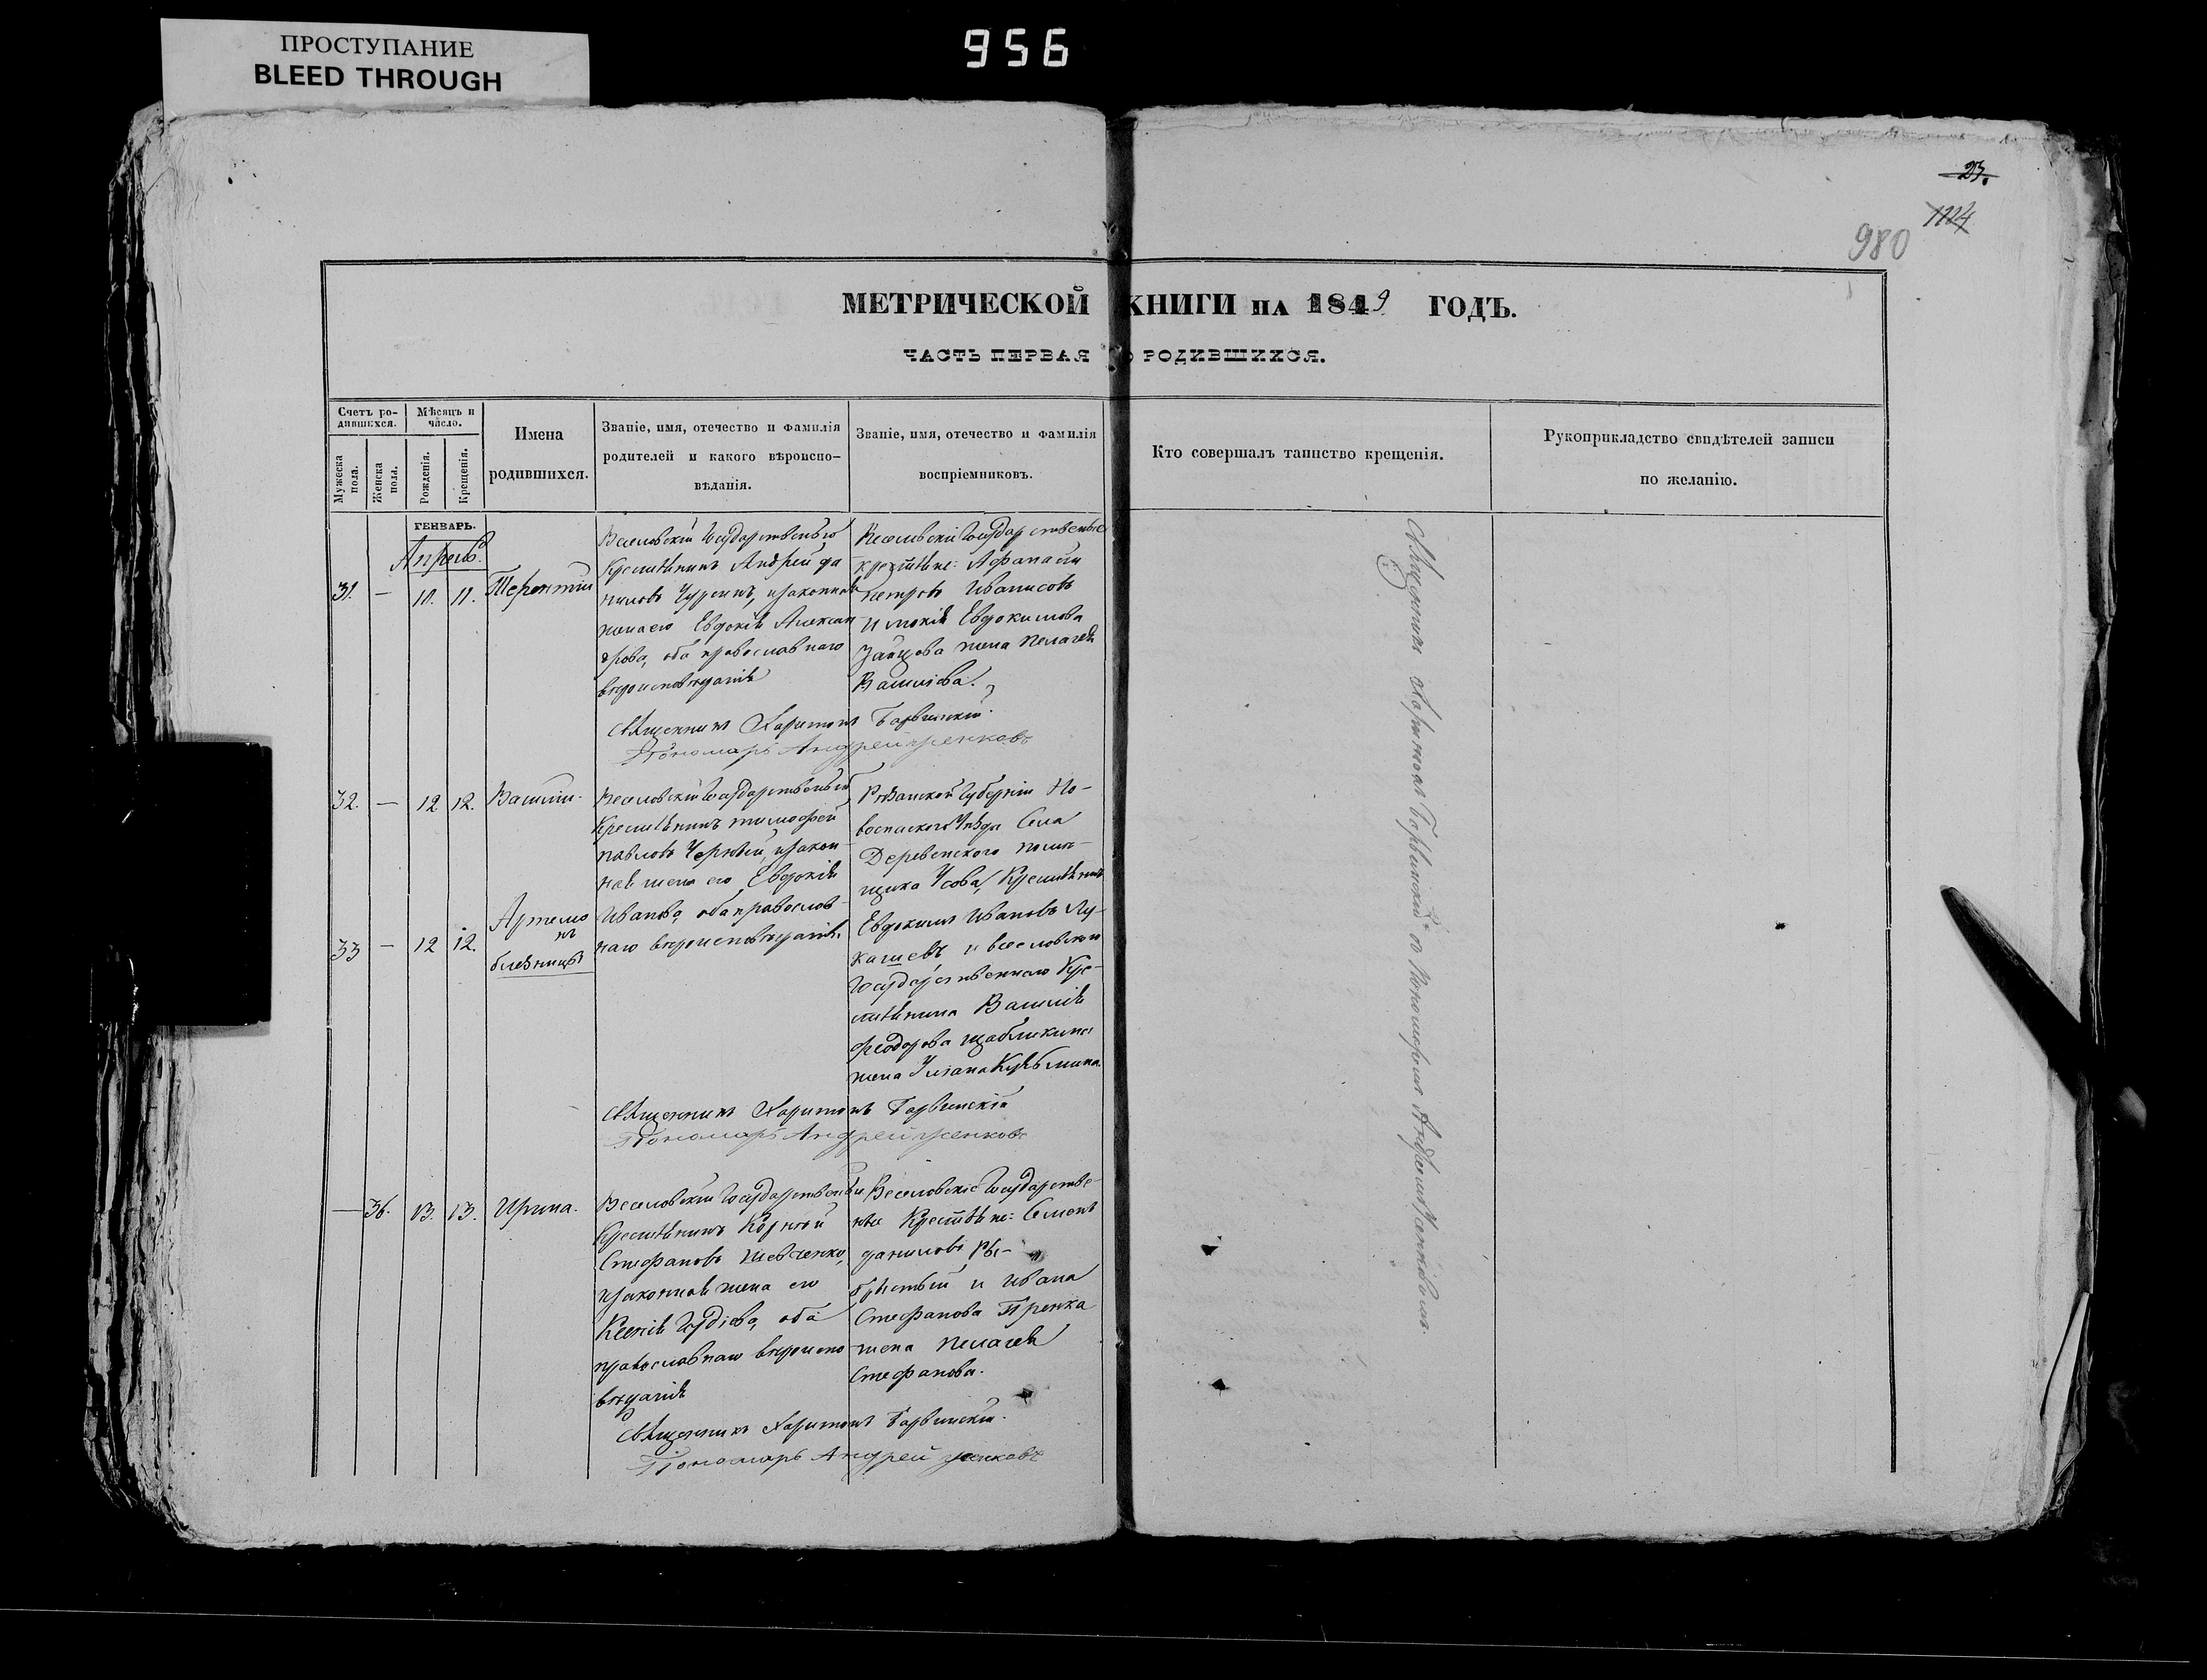 ПРОСТУПАНИЕ
BLEED THROUGH
956
23.
1124
980
МЕТРИЧЕСКОЙ КНИГИ НА 1849 ГОДЪ.
ЧАСТЬ ПЕРВАЯ О РОДИВШИХСЯ.
Счетъ родившихся.
Мужеска пола.
Женска пола.
Мѣсяцъ и число.
Рожденія.
Крещенія.
Имена
родившихся.
Званіе, имя, отечество и фамилія
родителей и какого вѣроиспо-
вѣданія.
Званіе, имя, отечество и фамилія
воспріемниковъ.
Кто совершалъ таинство крещенія.
Рукоприкладство свидѣтелей записи
по желанію.
ГЕНВАРЬ.
Апрель.
31. — 10. 11. Терентій
Веселовскій Государственный
Крестьянинъ Андрей Да
ниловъ Чурсинъ, и законная
жена его Евдокія Алексан
дрова, оба православнаго
вѣроисповѣданія
Веселовскіе Государственные
крестьяне: Афанасій
Петровъ Иванисовъ
Евдокимова
Зайцова жена Пелагея
Васильева.
Священникъ Харитонъ Барвинскій.
Пономарь Андрей
32. — 12 12. Василій.
33 — 12 12. Артемо
нъ
близнецы
Веселовскій Государственный
Крестьянинъ Тимофей
Павловъ Черный, и закон
ная жена его Евдокія
Иванова, оба православ-
наго вѣроисповѣданія.
Рязанской Губерніи
уѣзда Села
Деревенского помѣ-
щика Усова, Крестьянинъ
Евдокимъ Ивановъ Лу-
кашевъ, и веселовскаго
Государственнаго Кре-
стьянина Василія
Феодорова Щаблыкина
жена Уліана Кузьмина.
Священникъ Харитонъ Барвинскій
Пономарь Андрей
— 36. 13. 13. Ирина.
Веселовскій Государственный
Крестьянинъ Корнѣй
Стефановъ Шевченко,
и законная жена его
Ксенія оба
православнаго вѣроиспо
вѣданія
Веселовскіе Государстве-
нные Крестьяне: Семенъ
Даниловъ
и Ивана
Стефанова
жена Пелагея
Стефанова.
Священникъ Харитонъ Барвинскій.
Пономарь Андрей
Священникъ Харитонъ Барвинскій съ Пономаремъ Андреемъ